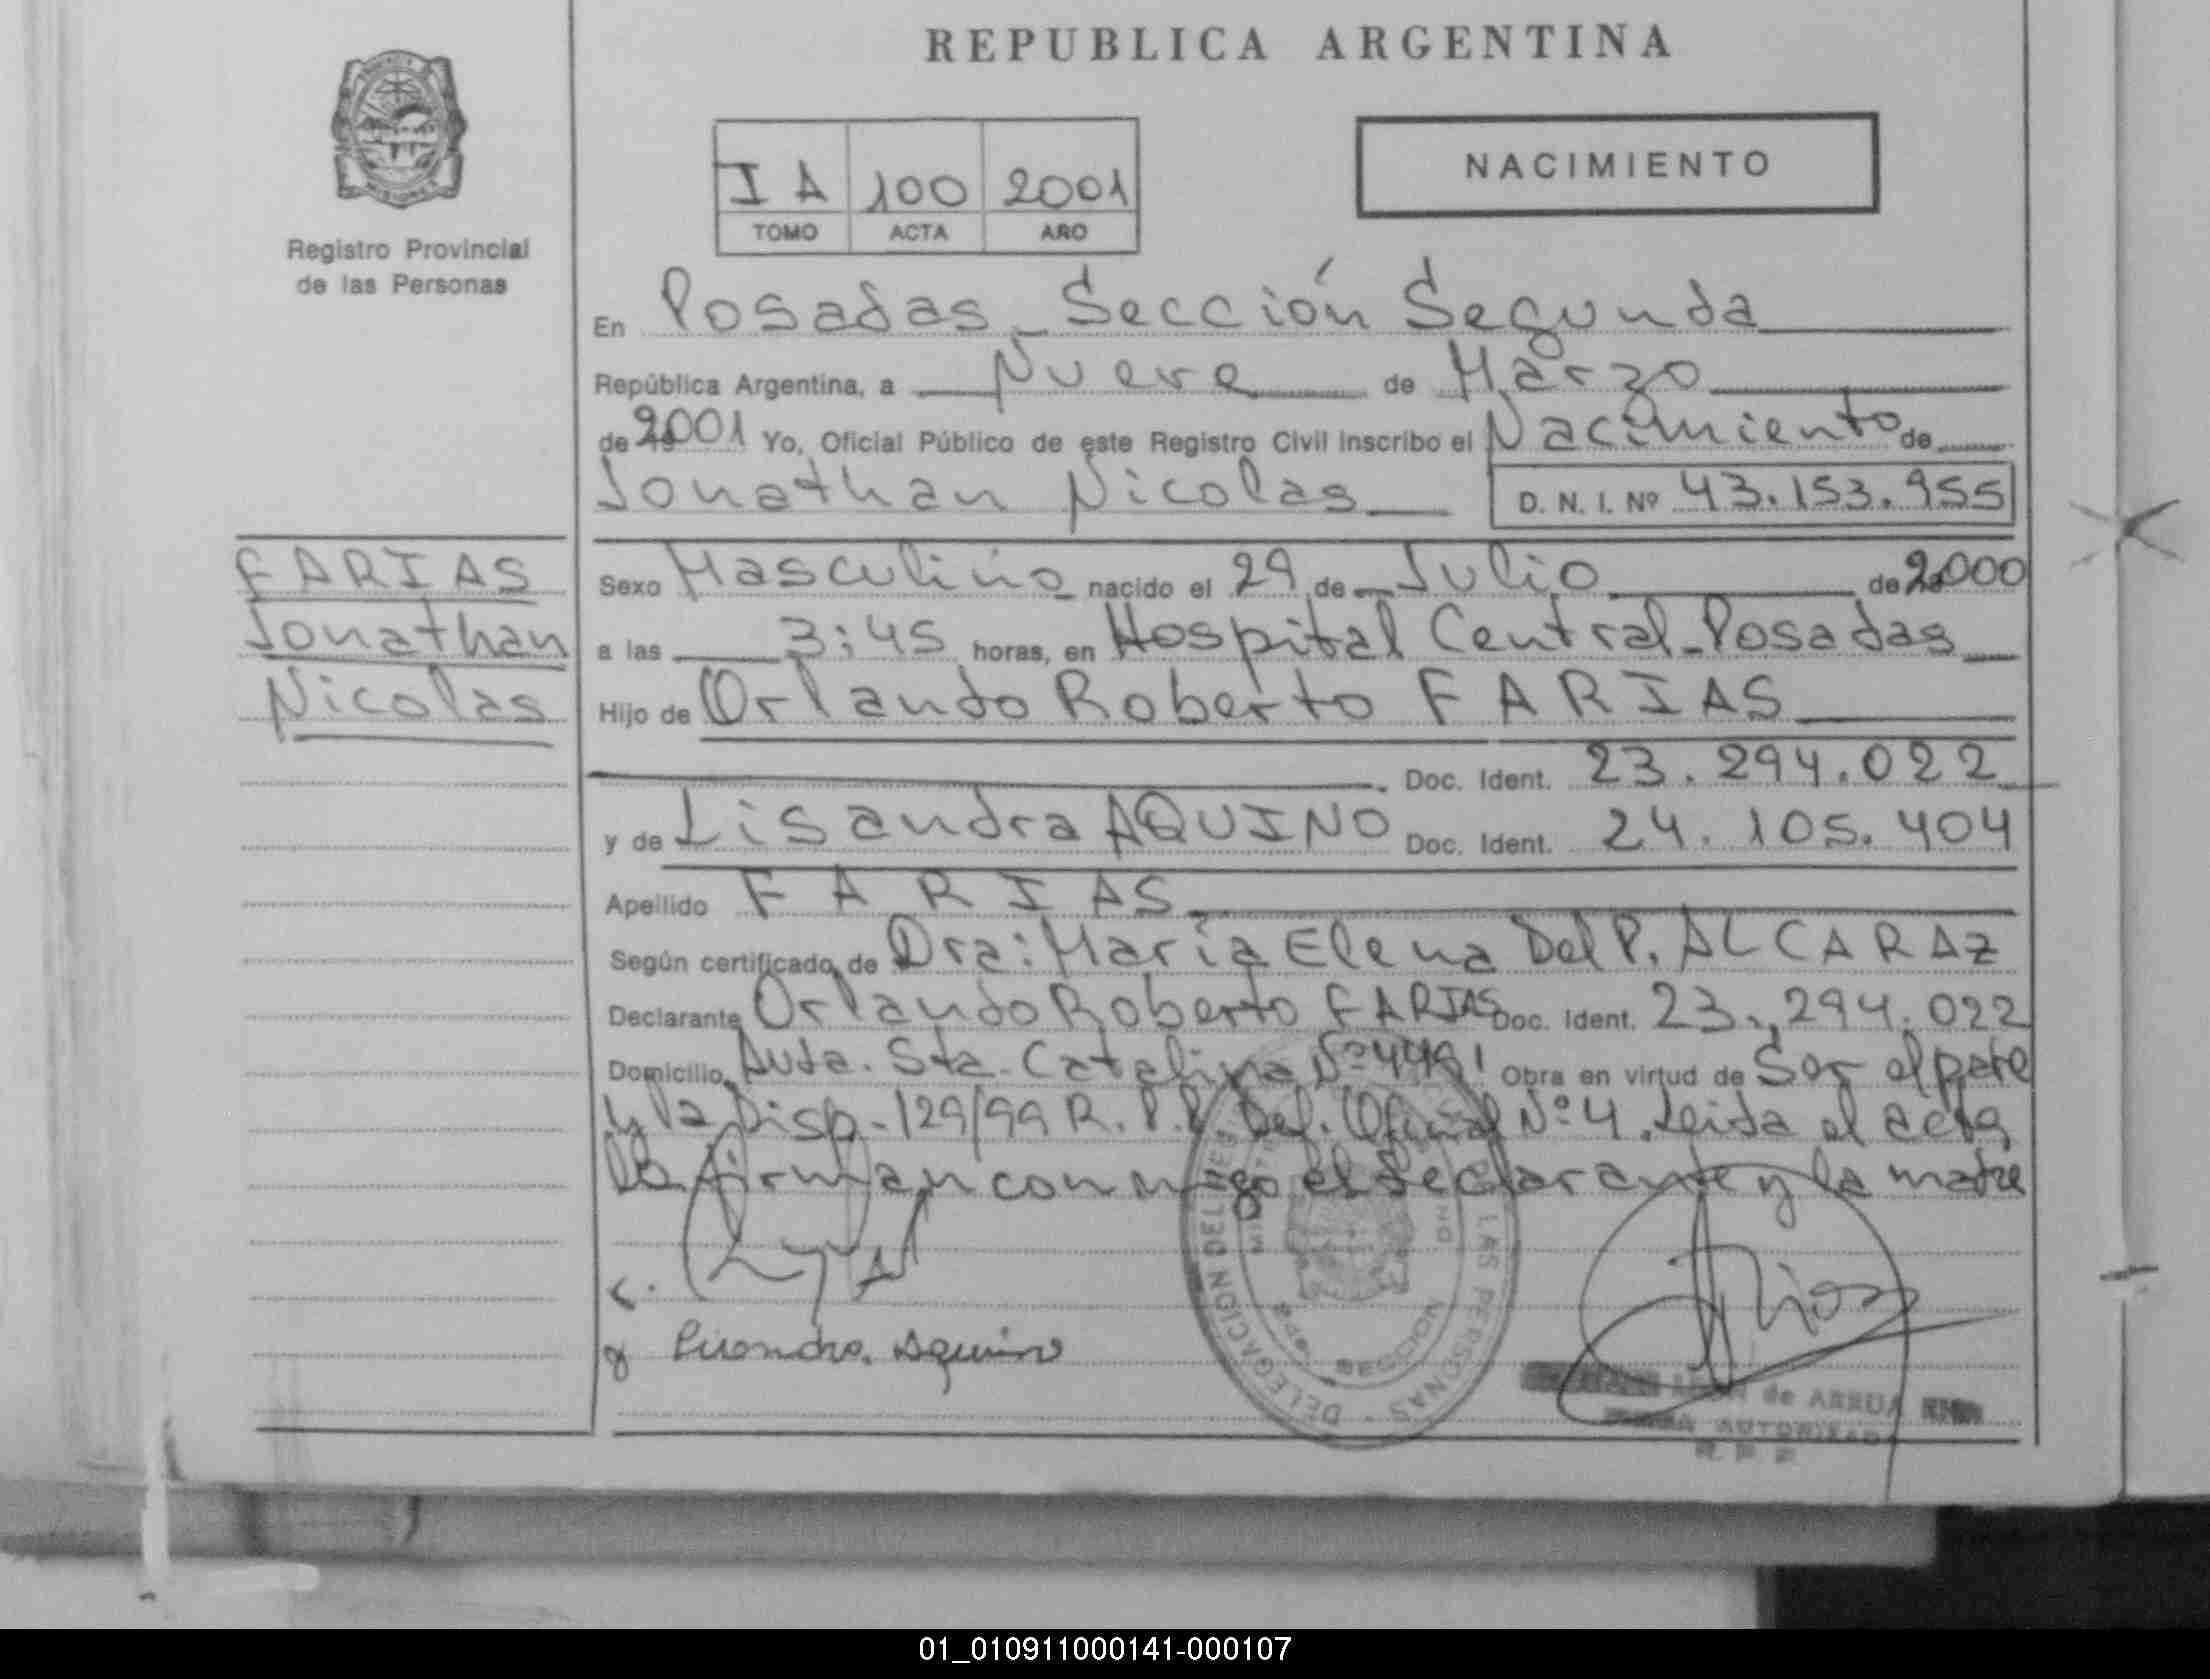 REPUBLICA ARGENTINA
NACIMIENTO
I A 100 2001
TOMO ACTA AÑO
Registro Provincial
de las Personas
En Posadas - Sección Segunda
República Argentina, a Nueve de Marzo
de 2001 Yo, Oficial Público de este Registro Civil inscribo el Nacimiento de
Jonathan Nicolas D. N. I. Nº 43.153.955
FARIAS
Jonathan
Nicolas
Sexo Masculino nacido el 29 de Julio de 2000
a las 3:45 horas, en Hospital Central - Posadas
Hijo de Orlando Roberto FARIAS
Doc. Ident. 23.294.022
y de Lisandra AQUINO Doc. Ident. 24.105.404
Apellido FARIAS
Según certificado de Dra: María Elena Del P. ALCARAZ
Declarante Orlando Roberto FARIAS Doc. Ident. 23.294.022
Domicilio Avda. Sta. Catalina Nº Obra en virtud de Ser el padre
y la Disp. 129/99 R.P.P. Def. Oficial Nº 4. Leida el acta
la firman conmigo el declarante y la madre
Lisandra Aquino
DELEGACION DEL LAS PERSONAS
SECCION
de ARRUA
AUTORIZADA
R P P
01_010911000141-000107